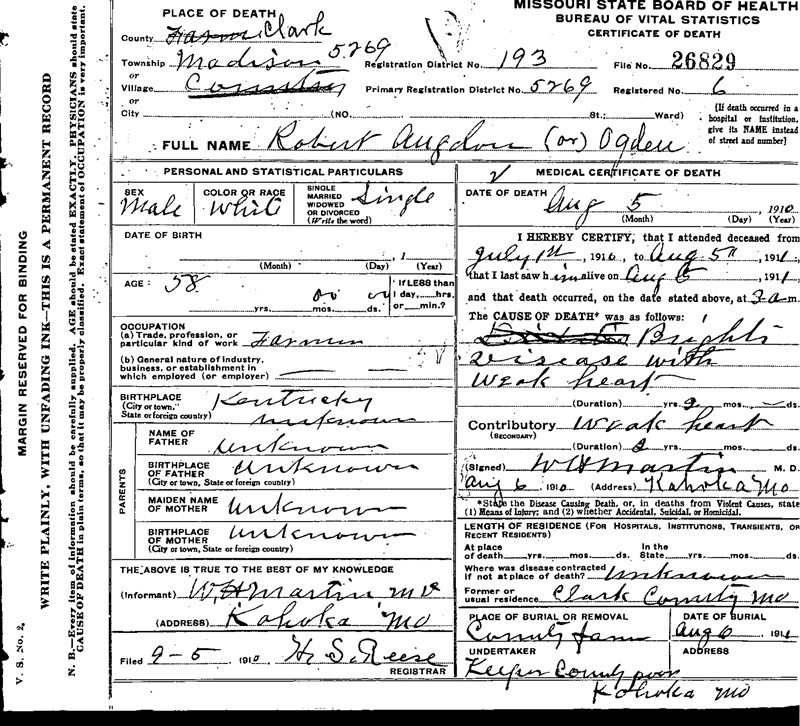 MISSOURI STATE BOARD OF HEALTH
BUREAU OF VITAL STATISTICS
CERTIFICATE OF DEATH
PLACE OF DEATH
County Clark
Township Madison 5269 Registration District No. 193 File No. 26829
or
Village Primary Registration District No. 5269 Registered No. 6
or
City (NO. St.; Ward)
[If death occurred in a
hospital or institution,
give its NAME instead
of street and number]
FULL NAME Robert Augdon (or) Ogden
PERSONAL AND STATISTICAL PARTICULARS
SEX
Male
COLOR OR RACE
White
SINGLE
MARRIED
WIDOWED
OR DIVORCED
(Write the word)
Single
DATE OF BIRTH
, 1
(Month) (Day) (Year)
AGE: 58
yrs. mos. ds.
If LESS than
1 day,....hrs.
or....min.?
OCCUPATION
(a) Trade, profession, or
particular kind of work Farmer
(b) General nature of industry,
business, or establishment in
which employed (or employer)
BIRTHPLACE
(City or town,
State or foreign country)
Kentucky
unknown
PARENTS
NAME OF
FATHER unknown
BIRTHPLACE
OF FATHER unknown
(City or town, State or foreign country)
MAIDEN NAME
OF MOTHER unknown
BIRTHPLACE
OF MOTHER unknown
(City or town, State or foreign country)
THE ABOVE IS TRUE TO THE BEST OF MY KNOWLEDGE
(Informant) W H Martin M D
(ADDRESS) Kahoka Mo
Filed 9-5 1910 H. S. Reese
REGISTRAR
MEDICAL CERTIFICATE OF DEATH
DATE OF DEATH
Aug 5 1910
(Month) (Day) (Year)
I HEREBY CERTIFY, that I attended deceased from
July 1st, 1910, to Aug 5th, 191
that I last saw him alive on Aug 5, 191
and that death occurred, on the date stated above, at 3 a m.
The CAUSE OF DEATH* was as follows:
Brights
disease with
weak heart
(Duration) 2 yrs. mos. ds.
Contributory weak heart
(SECONDARY)
(Duration) 2 yrs. mos. ds.
(Signed) W H Martin M. D.
Aug 6 1910 (Address) Kahoka Mo
*State the Disease Causing Death, or, in deaths from Violent Causes, state
(1) Means of Injury; and (2) whether Accidental, Suicidal, or Homicidal.
LENGTH OF RESIDENCE (FOR HOSPITALS, INSTITUTIONS, TRANSIENTS, OR
RECENT RESIDENTS)
At place
of death yrs. mos. ds.
In the
State yrs. mos. ds.
Where was disease contracted
if not at place of death? unknown
Former or
usual residence Clark County Mo
PLACE OF BURIAL OR REMOVAL
County farm
DATE OF BURIAL
Aug 6 191
UNDERTAKER
ADDRESS
Keeper County poor
Kahoka Mo
MARGIN RESERVED FOR BINDING
WRITE PLAINLY, WITH UNFADING INK—THIS IS A PERMANENT RECORD
N. B.—Every item of information should be carefully supplied. AGE should be stated EXACTLY. PHYSICIANS should state
CAUSE OF DEATH in plain terms, so that it may be properly classified. Exact statement of OCCUPATION is very important.
V. S. No. 2,